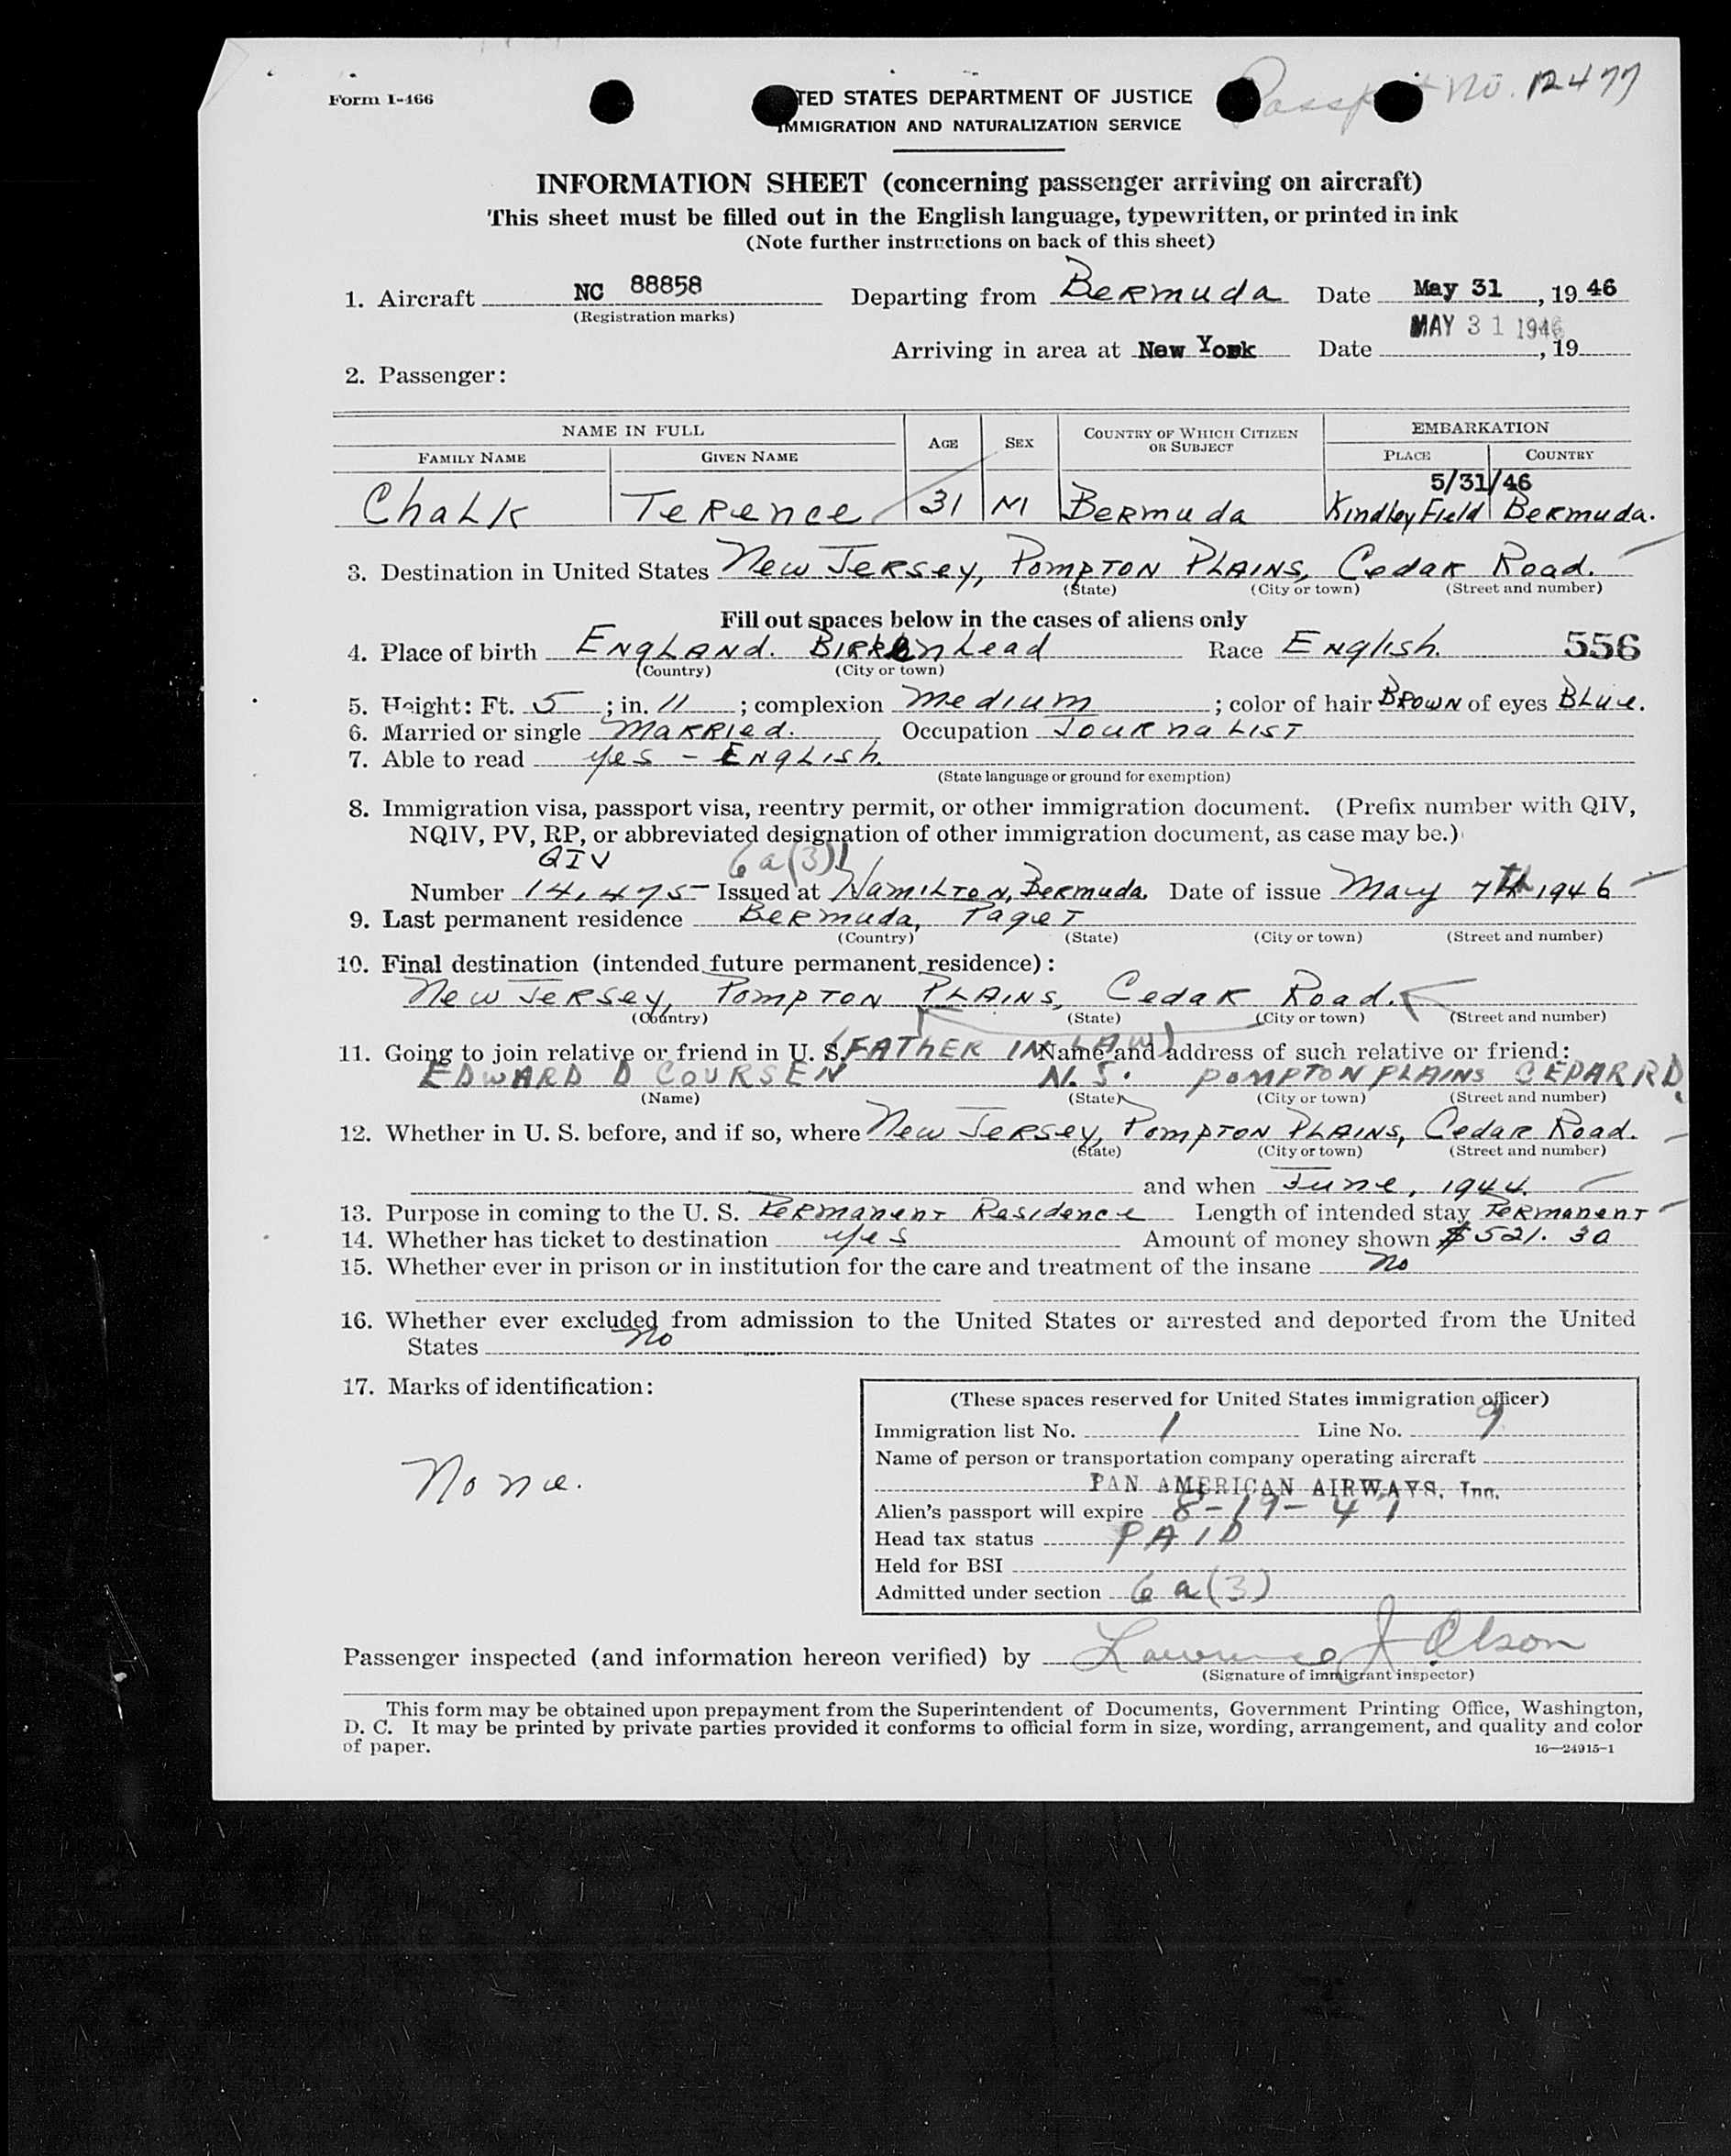 Form I-466
TED STATES DEPARTMENT OF JUSTICE
IMMIGRATION AND NATURALIZATION SERVICE
Passp t No. 12477
INFORMATION SHEET (concerning passenger arriving on aircraft)
This sheet must be filled out in the English language, typewritten, or printed in ink
(Note further instructions on back of this sheet)
1. Aircraft NC 88858 Departing from Bermuda Date May 31, 19 46
(Registration marks)
MAY 31 1946
Arriving in area at New York Date , 19
2. Passenger:
NAME IN FULL AGE SEX COUNTRY OF WHICH CITIZEN OR SUBJECT EMBARKATION
FAMILY NAME GIVEN NAME PLACE COUNTRY
5/31/46
Chalk Terence 31 M Bermuda Kindley Field Bermuda.
3. Destination in United States New Jersey, Pompton Plains, Cedar Road.
(State) (City or town) (Street and number)
Fill out spaces below in the cases of aliens only
4. Place of birth England. Birkenhead Race English. 556
(Country) (City or town)
5. Height: Ft. 5; in. 11; complexion medium; color of hair Brown of eyes Blue.
6. Married or single Married. Occupation Journalist
7. Able to read yes - English.
(State language or ground for exemption)
8. Immigration visa, passport visa, reentry permit, or other immigration document. (Prefix number with QIV,
NQIV, PV, RP, or abbreviated designation of other immigration document, as case may be.)
QIV 6a(3)
Number 14,475 Issued at Hamilton, Bermuda. Date of issue May 7th 1946
9. Last permanent residence Bermuda, Paget
(Country) (State) (City or town) (Street and number)
10. Final destination (intended future permanent residence):
New Jersey, Pompton Plains, Cedar Road.
(Country) (State) (City or town) (Street and number)
11. Going to join relative or friend in U. S. (FATHER IN LAW) Name and address of such relative or friend:
EDWARD D COURSEN N.J. POMPTON PLAINS CEDAR RD.
(Name) (State) (City or town) (Street and number)
12. Whether in U. S. before, and if so, where New Jersey, Pompton Plains, Cedar Road.
(State) (City or town) (Street and number)
and when June, 1944.
13. Purpose in coming to the U. S. Permanent Residence Length of intended stay Permanent
14. Whether has ticket to destination yes Amount of money shown $521.30
15. Whether ever in prison or in institution for the care and treatment of the insane no
16. Whether ever excluded from admission to the United States or arrested and deported from the United
States no
17. Marks of identification:
None.
(These spaces reserved for United States immigration officer)
Immigration list No. 1 Line No. 9
Name of person or transportation company operating aircraft
PAN AMERICAN AIRWAYS, Inc.
Alien's passport will expire 8-19-47
Head tax status PAID
Held for BSI
Admitted under section 6a(3)
Passenger inspected (and information hereon verified) by Lawrence J Olson
(Signature of immigrant inspector)
This form may be obtained upon prepayment from the Superintendent of Documents, Government Printing Office, Washington,
D. C. It may be printed by private parties provided it conforms to official form in size, wording, arrangement, and quality and color
of paper.
16—24915-1